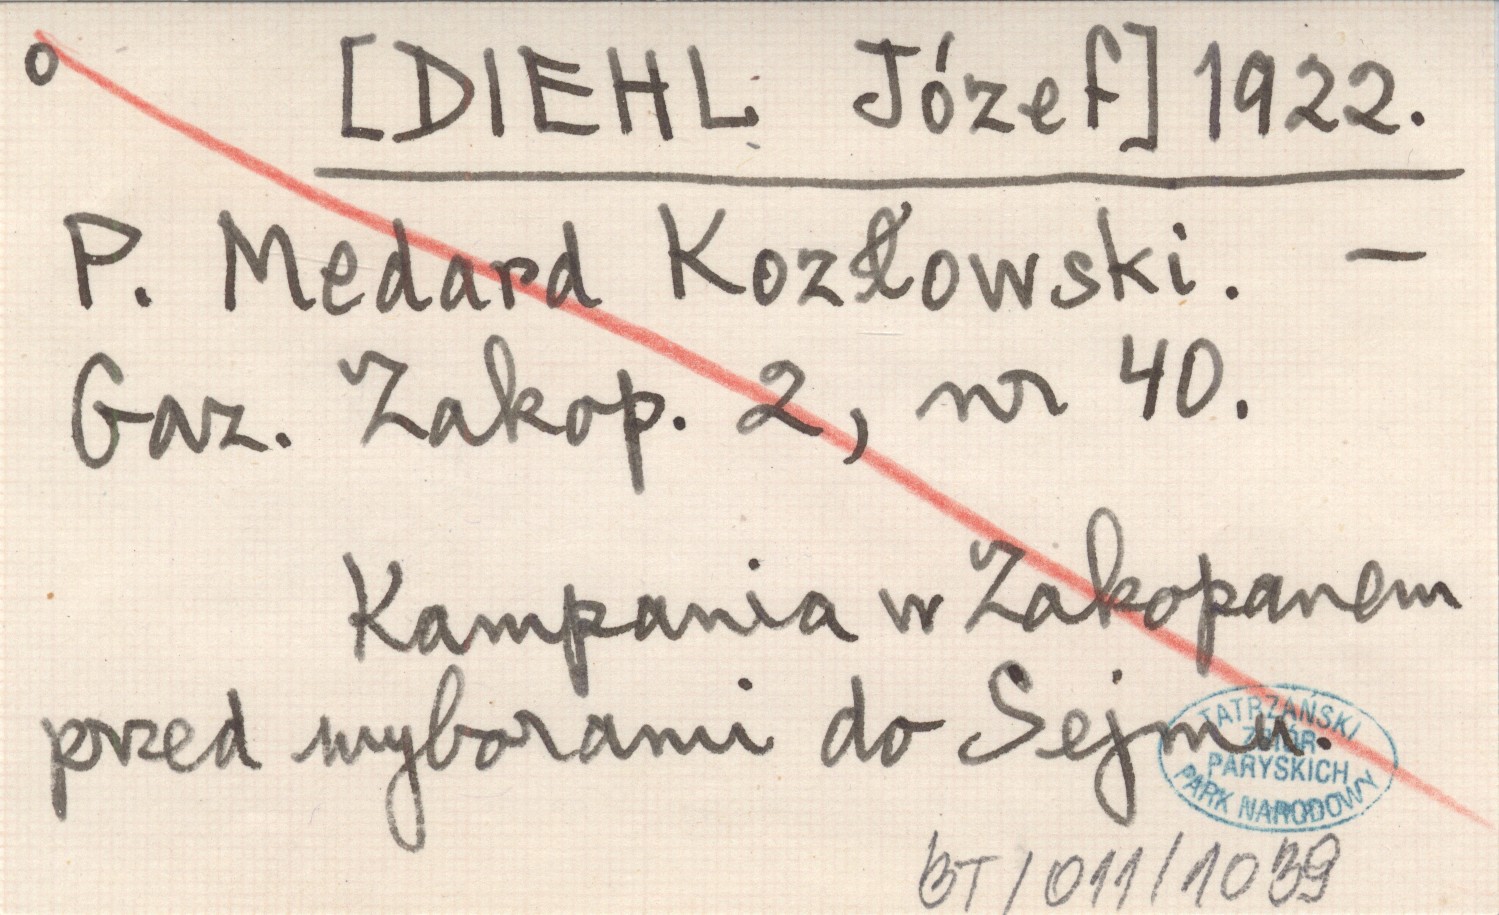 o [DIEHL Józef] 1922.
P. Medard Kozłowski. —
Gaz. Zakop. 2, nr 40.
Kampania w Zakopanem
przed wyborami do Sejmu.
TATRZAŃSKI
ZBIÓR
PARYSKICH
PARK NARODOWY
BT/011/1039